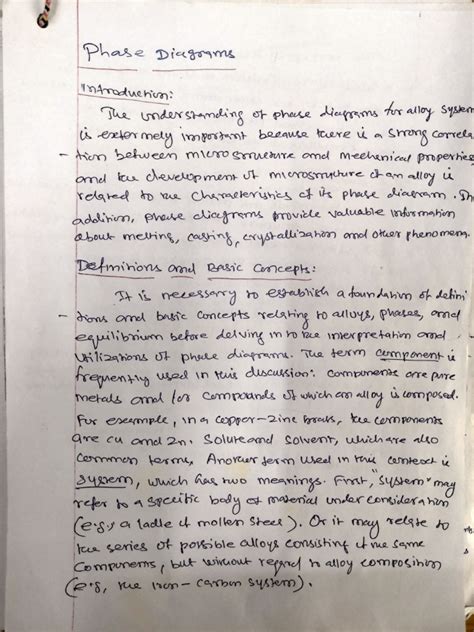 Phase Diagrams
Introduction:
The understanding of phase diagrams for alloy system
is extermely important because there is a strong correla
- tion between microstructure and mechanical properties
and the development of microstructure of an alloy is
related to the characteristics of its phase diagram. In
addition, phase diagrams provide valuable information
about melting, casting, crystallization and other phenomena.
Definitions and Basic Concepts:
It is necessary to establish a foundation of defini
- tions and basic concepts relating to alloys, phases, and
equilibrium before delving in to the interpretation and
utilizations of phase diagrams. The term component is
frequently used in this discussion: components are pure
metals and /or compounds of which an alloy is composed.
For example, in a copper-zinc brass, the components
are cu and zn. Solute and solvent, which are also
common terms, Another term used in this context is
System, which has two meanings. First, "System" may
refer to a specific body of material under consideration
(e.g., a ladle of molten steel). Or it may relate to
the series of possible alloys consisting of the same
components, but without regard to alloy composition
(e.g, the iron-carbon system).